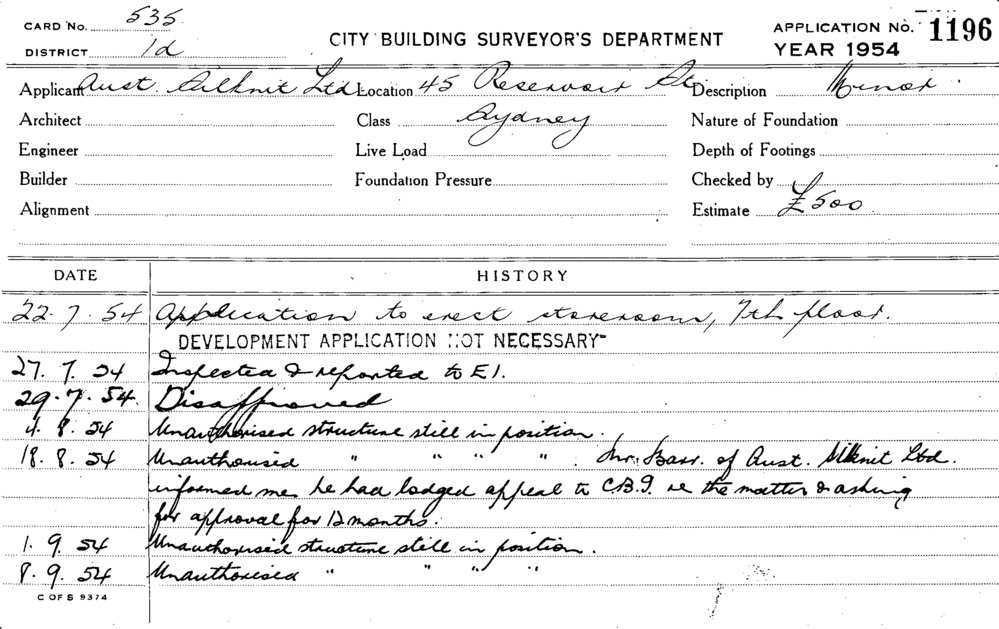 CARD No. 535
DISTRICT 1d
CITY BUILDING SURVEYOR'S DEPARTMENT
APPLICATION No. 1196
YEAR 1954
Applicant Aust. Silknit Ltd Location 45 Reservoir St Description Minor
Architect Class Sydney Nature of Foundation
Engineer Live Load Depth of Footings
Builder Foundation Pressure Checked by
Alignment Estimate £500.
DATE HISTORY
22.7.54 Application to erect storeroom, 7th floor.
DEVELOPMENT APPLICATION NOT NECESSARY
27.7.54 Inspected & reported to E1.
29.7.54. Disapproved
4.8.54 Unauthorised structure still in position.
18.8.54 Unauthorised " " " ". Mr. Barr. of Aust. Silknit Ltd.
informed me he had lodged appeal to C.B.S. re the matter & asking
for approval for 12 months.
1.9.54 Unauthorised structure still in position.
8.9.54 Unauthorised " " " "
C OF S 9374